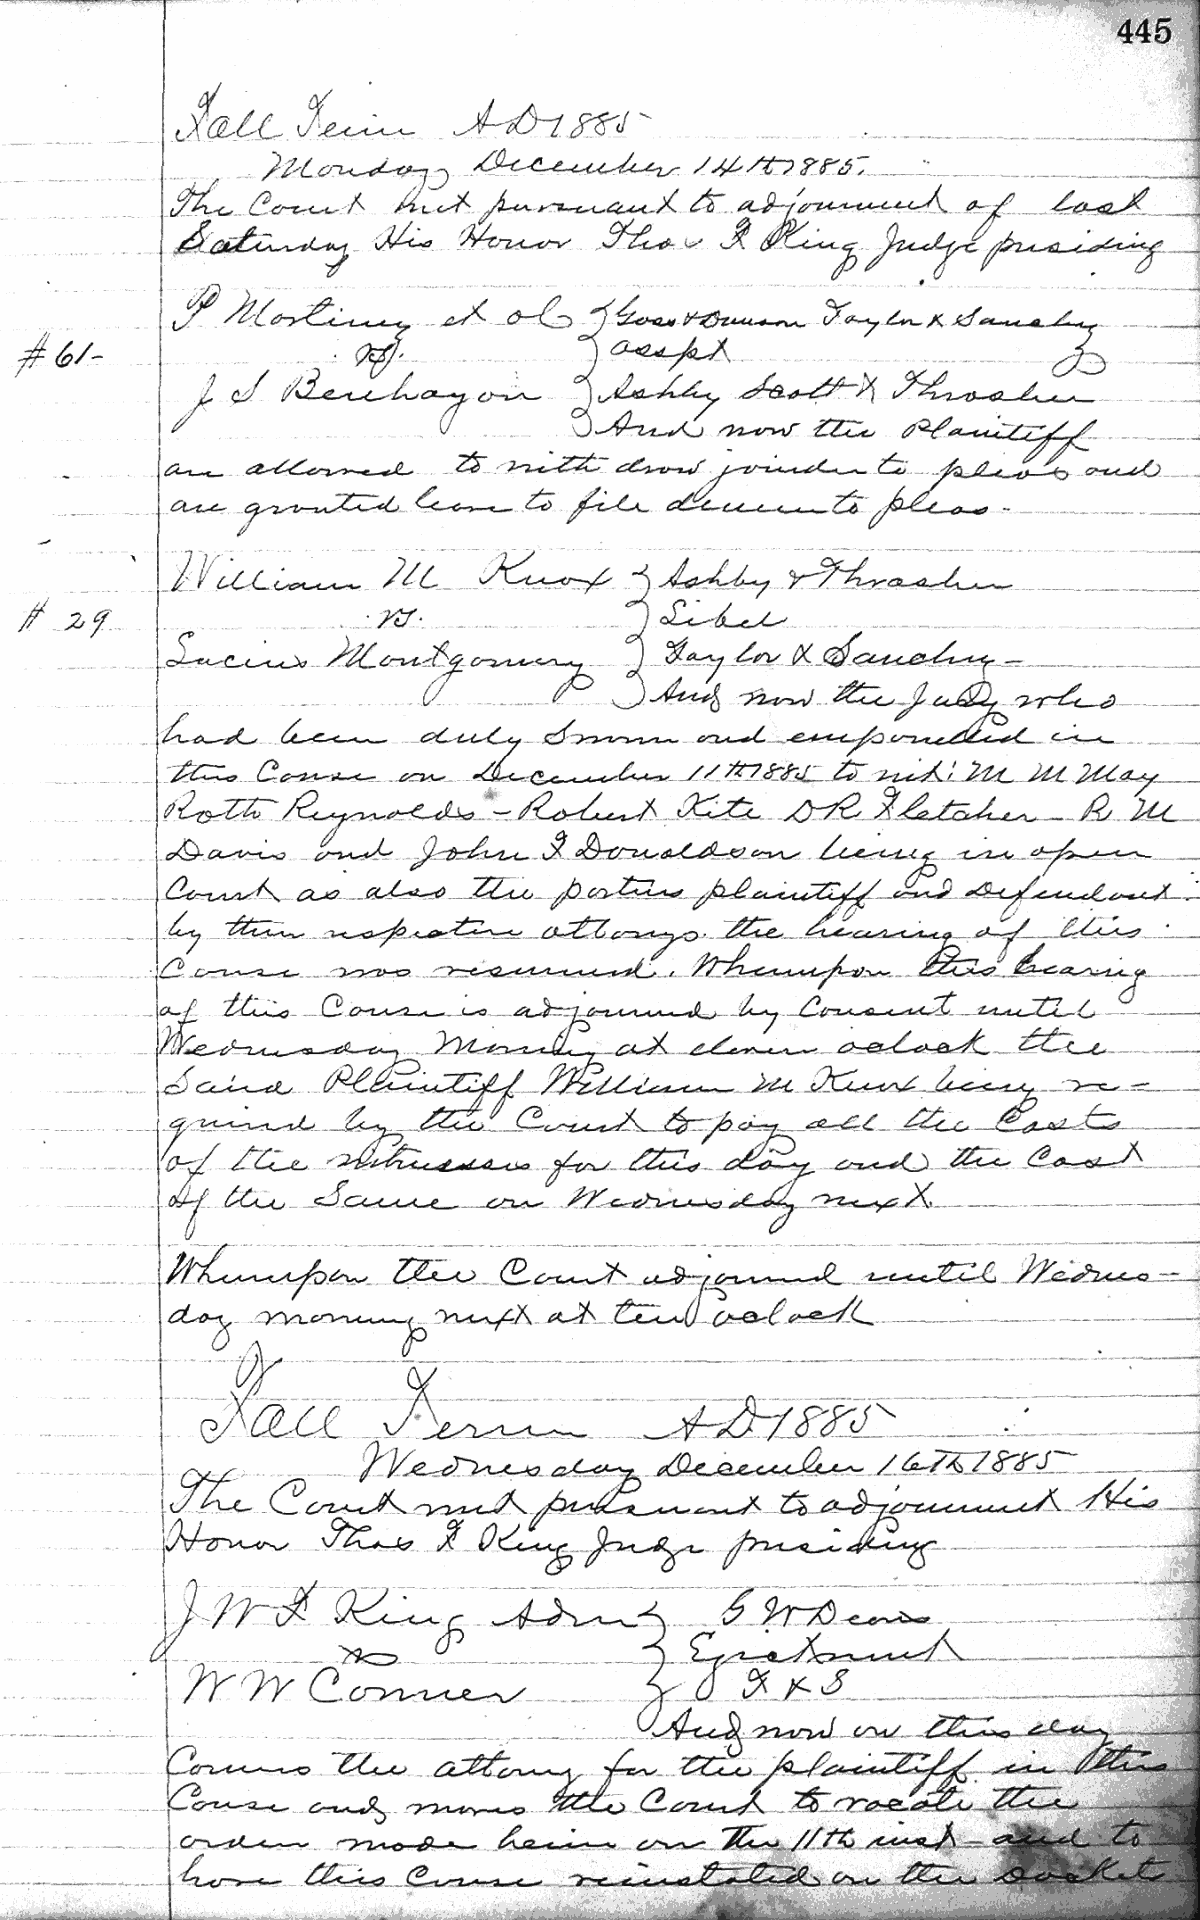 445
Fall Term AD 1885
Monday December 14th 1885.
The Court met pursuant to adjournment of last
Saturday His Honor Thos F King Judge presiding
P Martiney et al Goss & Dawson Taylor & Sanchez
#61- vs. asspt
J S Benhayon Ashby Scott & Thrasher
And now the Plaintiff
are allowed to with draw joinder to pleas and
are granted leave to file demur to pleas-
William M Knox Ashby & Thrasher
# 29 vs. Libel
Lucius Montgomery Taylor & Sanchez-
And now the Jury who
had been duly Sworn and empanelled in
this Cause on December 11th 1885 to wit: M M May
Roth Reynolds - Robert Kite D R Fletcher - R M
Davis and John F Donaldson being in open
Court as also the parties plaintiff and Defendant
by their respective attorneys. the hearing of this
Cause was resumed. Whereupon this hearing
of this Cause is adjourned by Consent until
Wednesday Morning at eleven oclock the
Said Plaintiff William M Knox being re-
quired by the Court to pay all the Costs
of the witnesses for this day and the Cost
of the Same on Wednesday next
Whereupon the Court adjourned until Wednes-
day morning next at ten oclock
Fall Term AD 1885
Wednesday December 16th 1885
The Court met pursuant to adjournment His
Honor Thos F King Judge presiding
J W F King Adm G W Deans
vs Ejectment
W W Conner T & S
And now on this day
Comes the attorney for the plaintiff in this
Cause and moves the Court to vacate the
order made herein on the 11th inst and to
have this Cause reinstated on the Docket